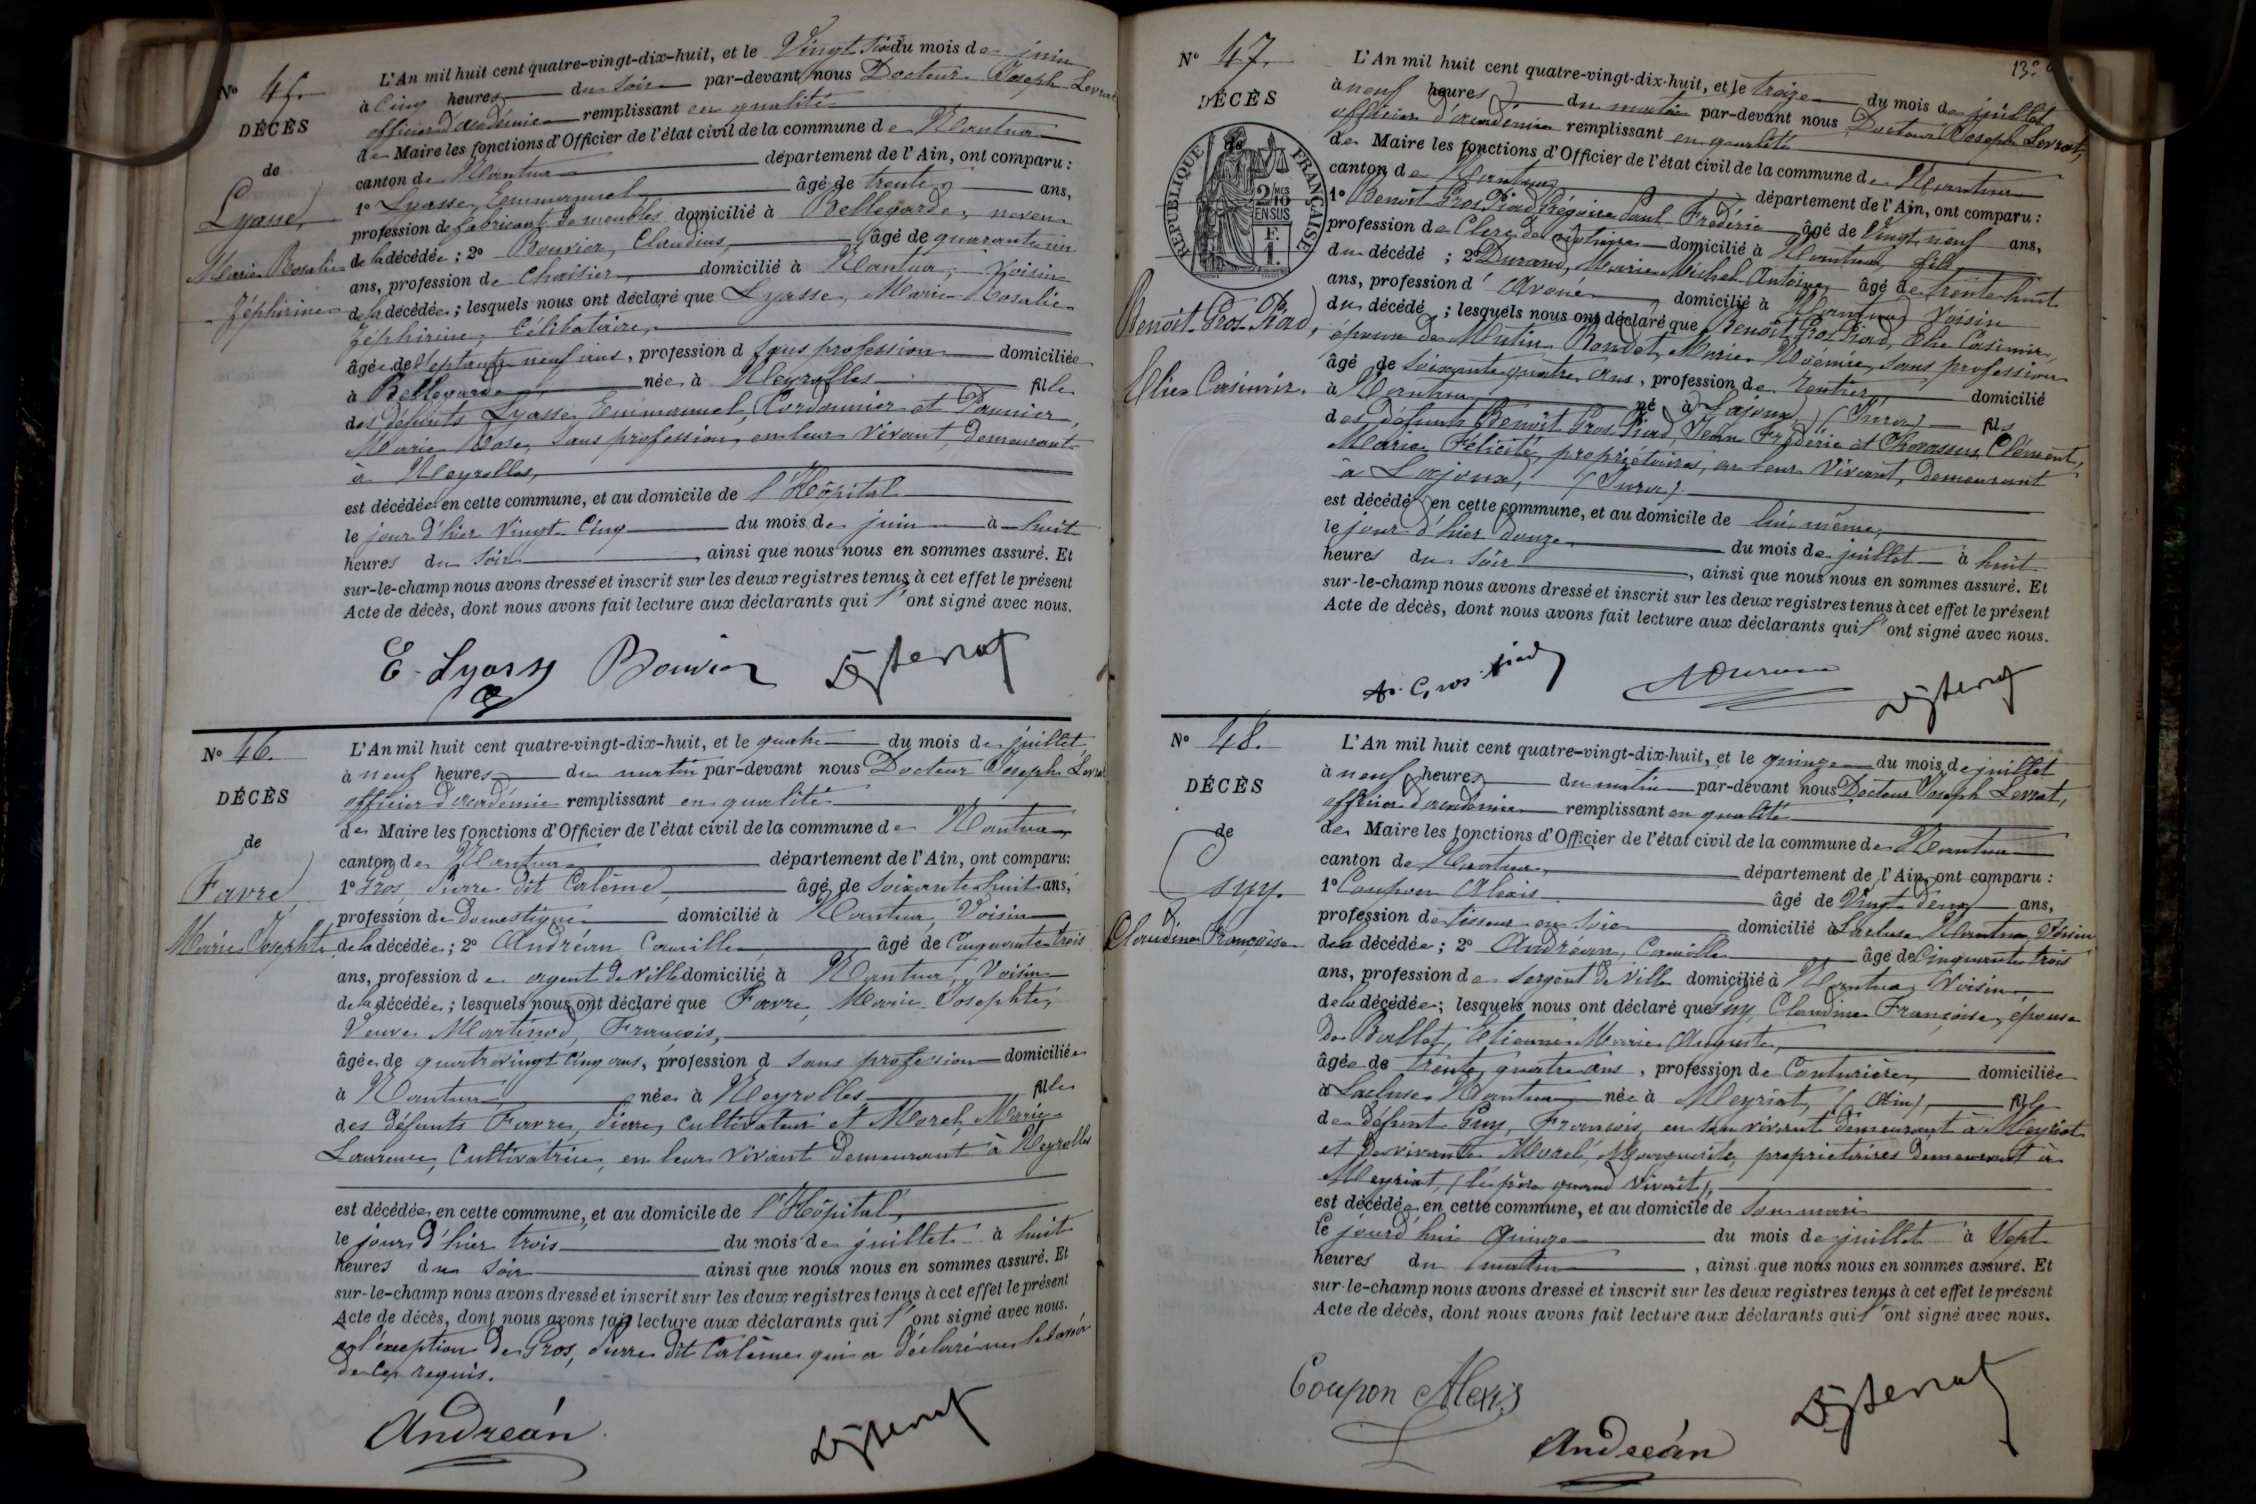 N° 45.
DÉCÈS
de
Lyasse,
Marie Rosalie
Zéphirine
L'An mil huit cent quatre-vingt-dix-huit, et le Vingt Six du mois de juin
à Cinq heures du Soir par-devant nous Docteur Joseph Levrat
officier d'académie remplissant en qualité
de Maire les fonctions d'Officier de l'état civil de la commune de Nantua
canton de Nantua département de l'Ain, ont comparu :
1° Lyasse, Emmanuel âgé de trente ans,
profession de fabricant de meubles domicilié à Bellegarde, neveu
de la décédée ; 2° Bouvier, Claudius, âgé de quarante un
ans, profession de Chaisier, domicilié à Nantua, Voisin
de la décédée ; lesquels nous ont déclaré que Lyasse, Marie Rosalie
Zéphirine, Célibataire,
âgée de Septante neuf ans, profession d Sans profession domiciliée
à Bellegarde née à Neyrolles fille
des défunts Lyasse Emmanuel, Cordonnier et Pannier,
Marie Rose, Sans profession, en leur vivant, demeurant
à Neyrolles,
est décédée en cette commune, et au domicile de l'Hôpital
le jour d'hier Vingt Cinq du mois de juin à huit
heures du Soir, ainsi que nous nous en sommes assuré. Et
sur-le-champ nous avons dressé et inscrit sur les deux registres tenus à cet effet le présent
Acte de décès, dont nous avons fait lecture aux déclarants qui l'ont signé avec nous.
E. Lyasse Bouvier Dr J Levrat
N° 46.
DÉCÈS
de
Favre,
Marie Josephte
L'An mil huit cent quatre-vingt-dix-huit, et le quatre du mois de juillet
à neuf heures du matin par-devant nous Docteur Joseph Levrat
officier d'académie remplissant en qualité
de Maire les fonctions d'Officier de l'état civil de la commune de Nantua
canton de Nantua département de l'Ain, ont comparu:
1° Gros, Pierre dit Calème, âgé de Soixante huit ans,
profession de domestique domicilié à Nantua, Voisin
de la décédée; 2° Andréan Camille, âgé de Cinquante trois
ans, profession de agent de Ville domicilié à Nantua, Voisin
de la décédée; lesquels nous ont déclaré que Favre, Marie Josephte,
Veuve Martinod, François,
âgée de quatrevingt Cinq ans, profession d sans profession domiciliée
à Nantua née à Neyrolles fille
des défunts Favre, Pierre, Cultivateur et Morel, Marie
Laurence, Cultivatrice, en leur vivant demeurant à Neyrolles
est décédée en cette commune, et au domicile de l'Hôpital,
le jour d'hier trois du mois de juillet à huit
heures du Soir ainsi que nous nous en sommes assuré. Et
sur-le-champ nous avons dressé et inscrit sur les deux registres tenus à cet effet le présent
Acte de décès, dont nous avons fait lecture aux déclarants qui l'ont signé avec nous.
à l'exception de Gros, Pierre dit Calème qui a déclaré ne le savoir
de ce requis.
Andréan Dr J Levrat
N° 47.
DÉCÈS
de
RÉPUBLIQUE FRANÇAISE
2/10 MES EN SUS
F. 1.
Benoit Gros Piad,
Elie Casimir.
L'An mil huit cent quatre-vingt-dix-huit, et le treize du mois de juillet
à neuf heures du matin par-devant nous Docteur Joseph Levrat,
officier d'académie remplissant en qualité
de Maire les fonctions d'Officier de l'état civil de la commune de Nantua
canton de Nantua département de l'Ain, ont comparu :
1° Benoit Gros Piad Grégoire Paul Frédéric âgé de Vingt neuf ans,
profession de Clerc de notaire domicilié à Nantua, fils
du décédé ; 2° Durand, Marie Michel Antoine, âgé de trente huit
ans, profession d'Avoué domicilié à Nantua, Voisin
du décédé ; lesquels nous ont déclaré que Benoit Gros Piad, Elie Casimir,
époux de Mutin Bondet, Marie Noémie, sans profession
âgé de Soixante quatre ans, profession de rentier, domicilié
à Nantua, né à Lajoux, (Jura) fils
des défunts Benoit Gros Piad, Jean Frédéric et Chavassus Clément,
Marie Félicité, propriétaires, en leur Vivant, demeurant
à Lajoux, (Jura)
est décédé en cette commune, et au domicile de lui même,
le jour d'hier douze du mois de juillet à huit
heures du Soir, ainsi que nous nous en sommes assuré. Et
sur-le-champ nous avons dressé et inscrit sur les deux registres tenus à cet effet le présent
Acte de décès, dont nous avons fait lecture aux déclarants qui l'ont signé avec nous.
Gros Piad Durand Dr J Levrat
N° 48.
DÉCÈS
de
Guy.
Claudine Françoise
L'An mil huit cent quatre-vingt-dix-huit, et le quinze du mois de juillet
à neuf heures du matin par-devant nous Docteur Joseph Levrat,
officier d'académie remplissant en qualité
de Maire les fonctions d'Officier de l'état civil de la commune de Nantua
canton de Nantua, département de l'Ain, ont comparu :
1° Coupon Alexis âgé de Vingt deux ans,
profession de tisseur en Soie domicilié à Lacluse Nantua, Voisin
de la décédée; 2° Andréan, Camille âgé de Cinquante trois
ans, profession de Sergent de Ville domicilié à Nantua, Voisin
de la décédée; lesquels nous ont déclaré que Guy, Claudine Françoise, épouse
de Ballet, Etienne Marie Auguste,
âgée de trente quatre ans, profession de Couturière, domiciliée
à Lacluse Nantua née à Meyriat, (Ain), fille
de défunt Guy, François, en son vivant demeurant à Meyriat
et de vivante Morel, Marguerite, propriétaires demeurant à
Meyriat, (le père quand vivait),
est décédée en cette commune, et au domicile de Son mari
le jourd'hui Quinze du mois de juillet à Sept
heures du matin, ainsi que nous nous en sommes assuré. Et
sur-le-champ nous avons dressé et inscrit sur les deux registres tenus à cet effet le présent
Acte de décès, dont nous avons fait lecture aux déclarants qui l'ont signé avec nous.
Coupon Alexis Andréan Dr J Levrat